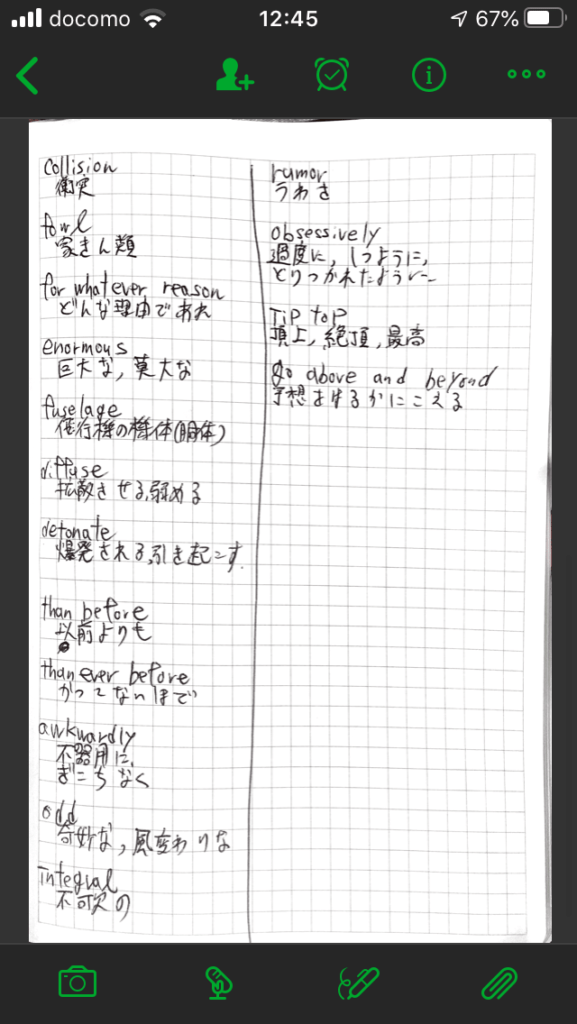 docomo
12:45
67%
collision
衝突
fowl
家きん類
for whatever reason
どんな理由であれ
enormous
巨大な, 莫大な
fuselage
飛行機の機体(胴体)
diffuse
拡散させる, 弱める
detonate
爆発される, 引き起こす.
than before
以前よりも
than ever before
かつてないほどで
awkwardly
不器用に,
ぎこちなく
odd
奇妙な, 風変わりな
integral
不可欠の
rumor
うわさ
obsessively
過度に, しつように,
とりつかれたように
Tip top
頂上, 絶頂, 最高
go above and beyond
予想をはるかにこえる